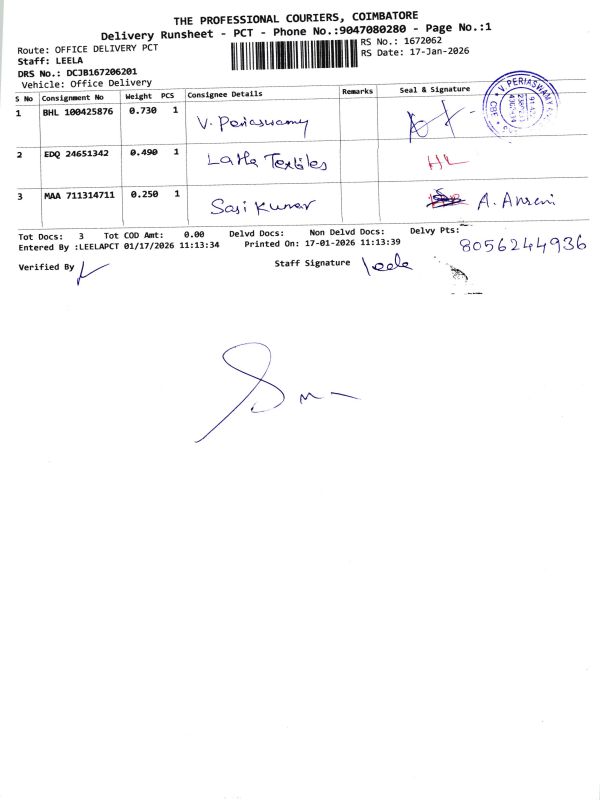 THE PROFESSIONAL COURIERS, COIMBATORE
Delivery Runsheet - PCT - Phone No.:9047080280 - Page No.:1
Route: OFFICE DELIVERY PCT
RS No.: 1672062
Staff: LEELA
RS Date: 17-Jan-2026
DRS No.: DCJB167206201
Vehicle: Office Delivery
S No Consignment No Weight PCS Consignee Details Remarks Seal & Signature
1 BHL 100425876 0.730 1 V. Periaswamy
V. PERIASWAMY
CBE
2 EDQ 24651342 0.490 1 Latha Textiles HL
3 MAA 711314711 0.250 1 Sasi Kumar A. Anseni
Tot Docs: 3 Tot COD Amt: 0.00 Delvd Docs: Non Delvd Docs: Delvy Pts:
Entered By :LEELAPCT 01/17/2026 11:13:34 Printed On: 17-01-2026 11:13:39 8056244936
Verified By Staff Signature leela